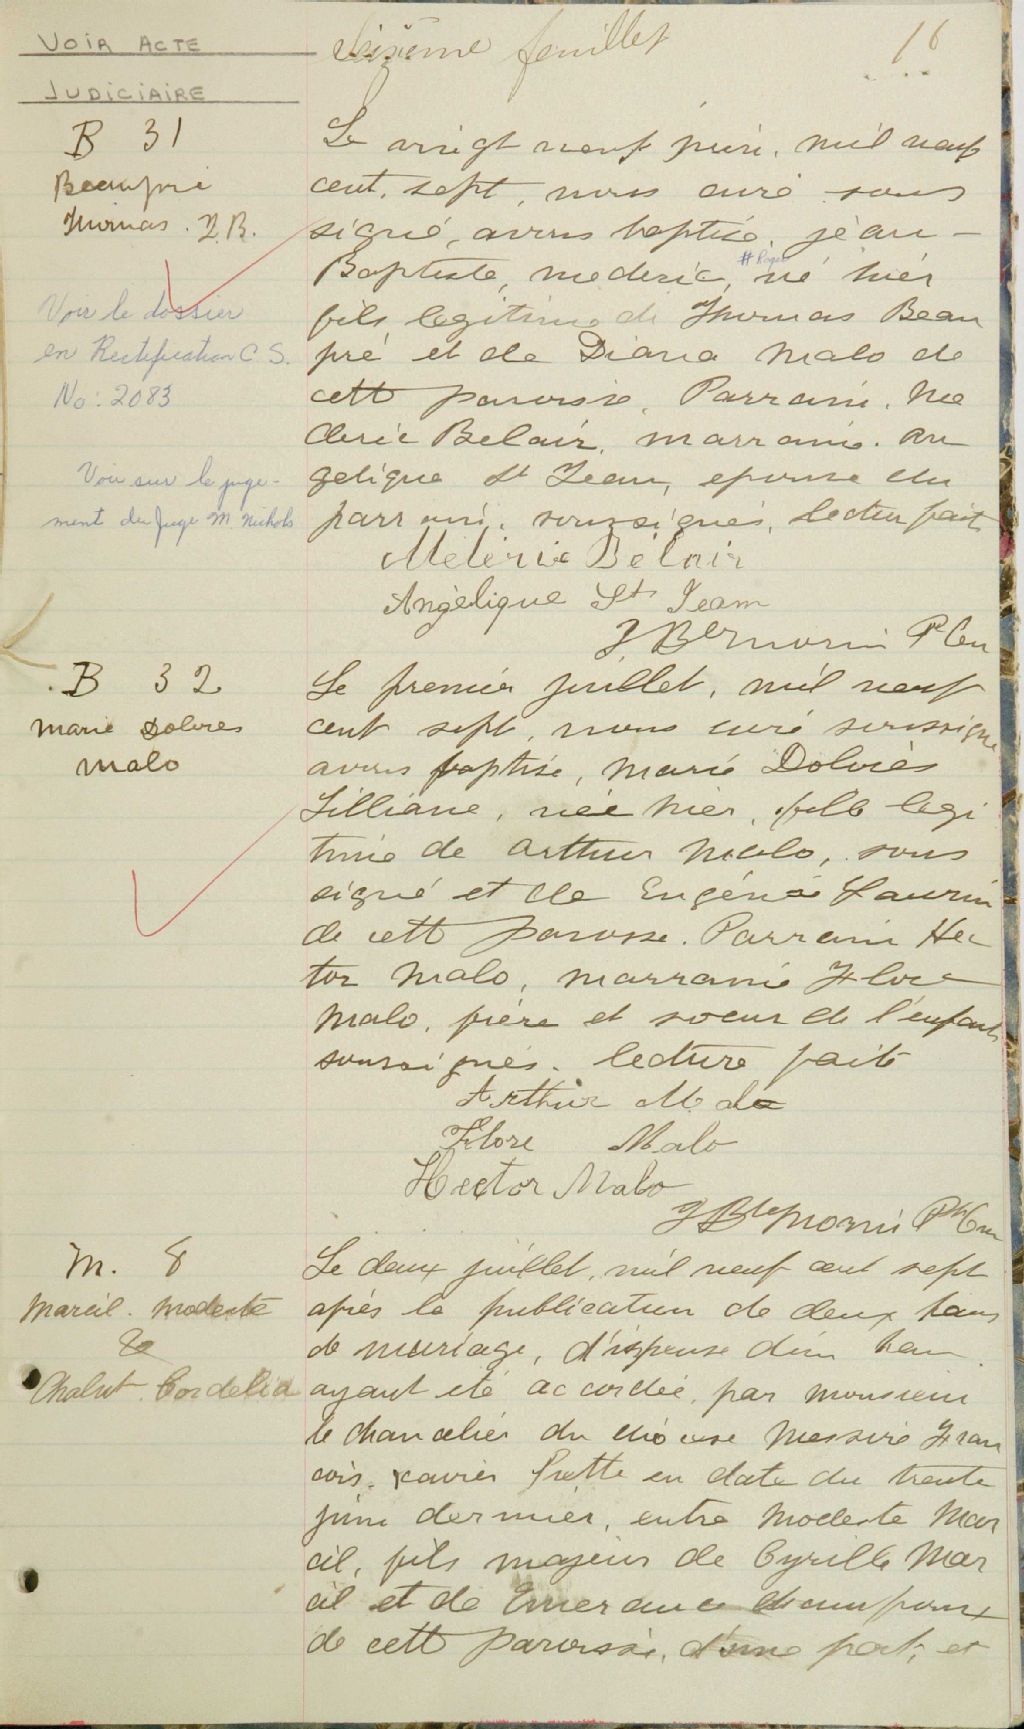 VOIR ACTE
JUDICIAIRE
Seizième feuillet
16
B 31
Beaupré
Thomas. J.B.
Voir le dossier
en Rectification C.S.
No: 2083
Voir sur le juge-
ment du Juge M. Nichols
Le vingt neuf juin, mil neuf
cent, sept, nous curé sous
signé, avons baptisé, jéan -
Baptiste, mederic, né hier
fils legitime de Thomas Beau
pré et de Diana Malo de
cette paroisse, Parrain, Me
deric Belair, marraine. An
gelique St Jean, epouse du
parrain, soussignés, lecture faite
Méléric Bélair
Angèlique St Jean
J Bte morin Ptre Cu
B 32
Marie Dolores
Malo
Le premier juillet, mil neuf
cent sept, nous curé soussigné
avons baptisé, Marie Dolorès
Lilliane, née hier, fille legi
time de Arthur Malo, sous
signé et de Eugénie Laurin
de cette paroisse. Parrain Hec
tor Malo, marraine Flore
Malo, frère et soeur de l'enfant
soussignés. lecture faite
Arthur Malo
Flore Malo
Hector Malo
J Bte Morin Ptre Cu
M. 8
Mareil. Modeste
&
Chalut Cordelia
Le deux juillet, mil neuf cent sept
après la publication de deux bans
de mariage, dispense d'un ban
ayant été accordée, par monsieur
le chancelier du diocèse Messire Fran
cois. xavier en date du trente
juin dernier, entre Modeste Mar
cil, fils majeur de Cyrille Mar
cil et de Emerance
de cette paroisse, d'une part, et